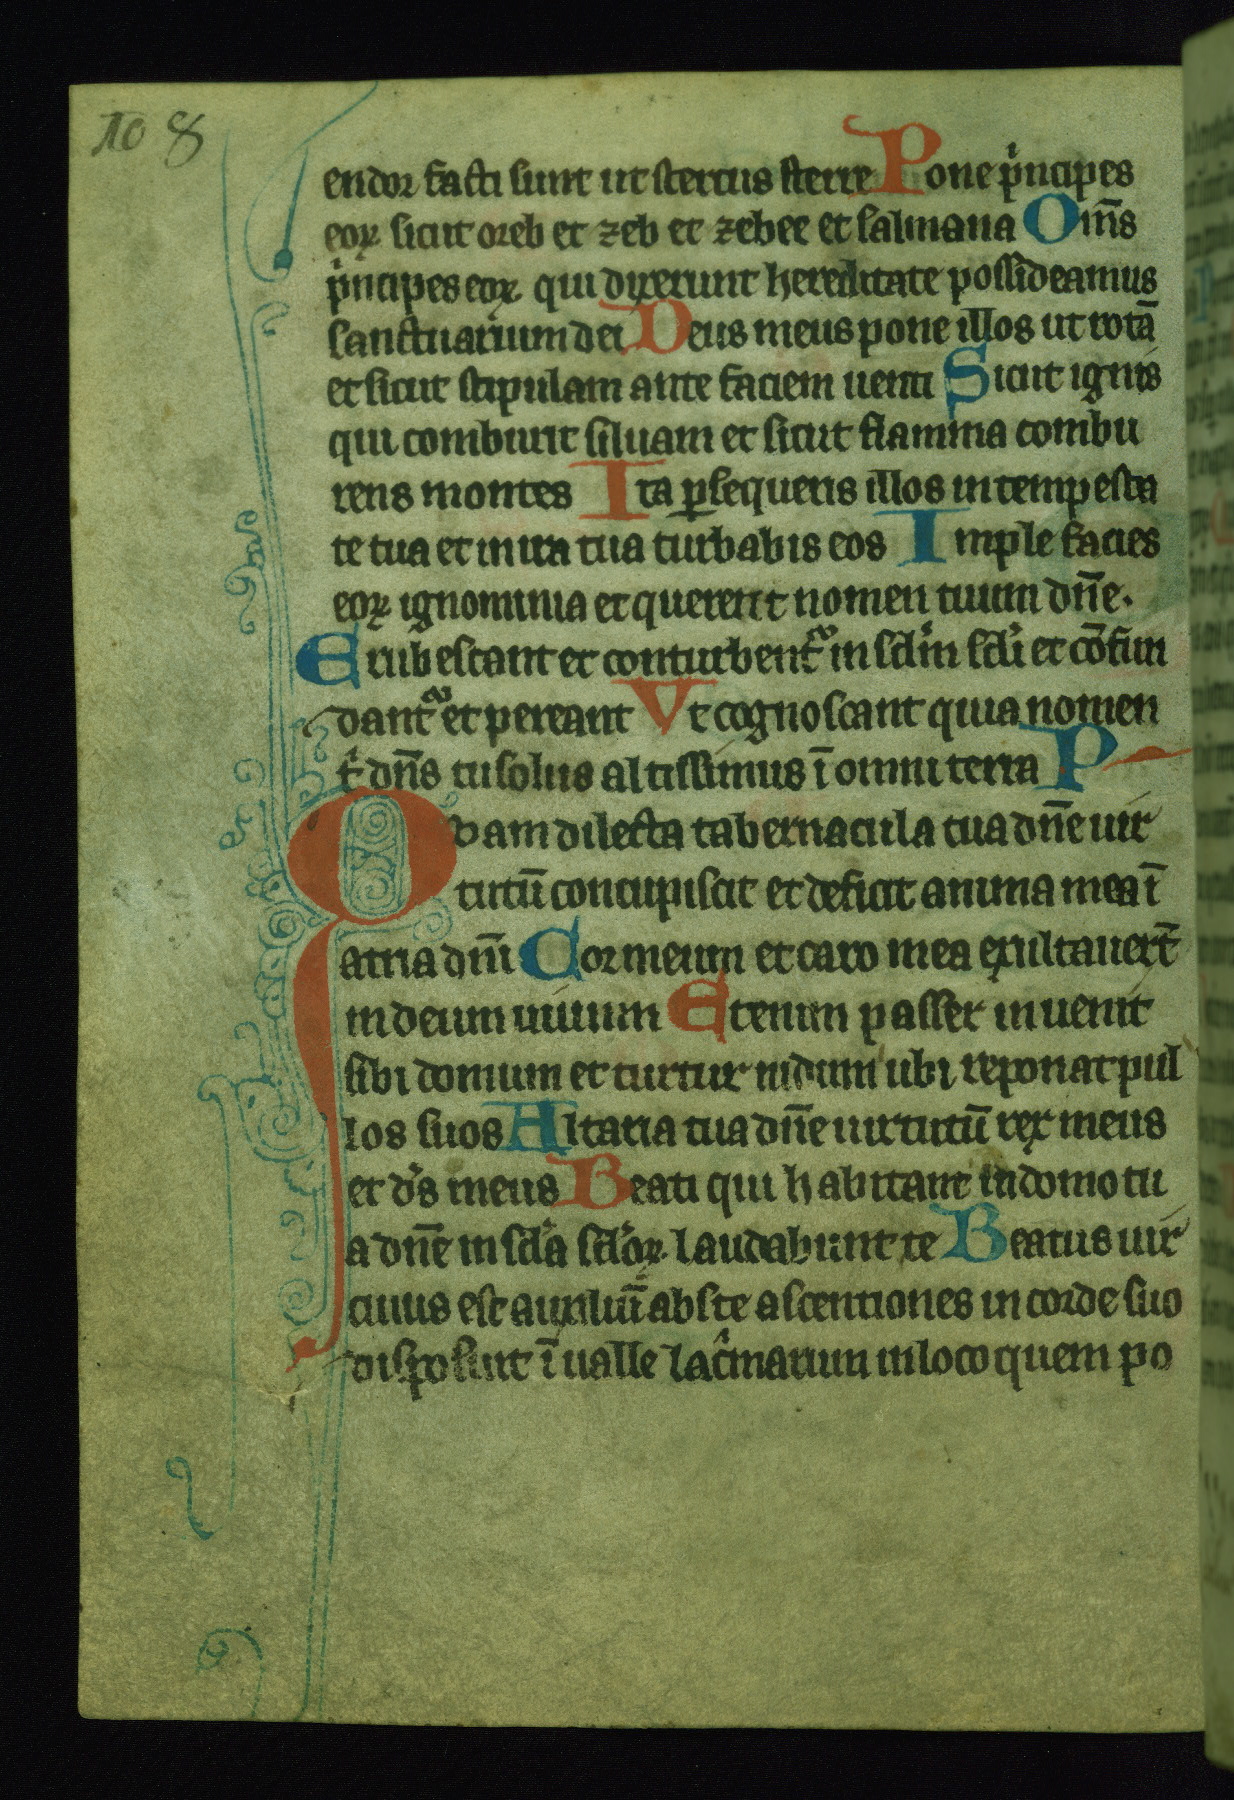 108
endor facti sunt ut stercus sterre Pone p̍ncipes
eoꝝ sicut oreb et zeb et zebee et salmana Om̄s
p̍ncipes eoꝝ qui dixerunt hereditate possideamus
sanctuarium dei Deus meus pone illos ut rotā
et sicut stipulam ante faciem uenti Sicut ignis
qui comburit siluam et sicut flamma combu
rens montes Ita ꝑsequeris illos in tempesta
te tua et in ira tua turbabis eos Imple facies
eoꝝ ignominia et querent nomen tuum dn̄e.
Erubescant et conturbent᷑ in scl̍m scl̍i et cōfun
dant᷑ et pereant Vt cognoscant quia nomen
t̍ dn̄s tu solus altissimus ī omni terra P
Qvam dilecta tabernacula tua dn̄e uir
tutū concupiscit et deficit anima mea ī
atria dn̄i Cor meum et caro mea exultauer̄t
in deum uiuum Etenim passer inuenit
sibi domum et turtur nidum ubi reponat pul
los suos Altaria tua dn̄e uirtutū rex meus
et d̍s meus Beati qui habitant in domo tu
a dn̄e in scl̍a scl̍oꝝ laudabunt te Beatus uir
cuius est auxiliū abs te ascentiones in corde suo
disposuit ī ualle lac̍marum in loco quem po